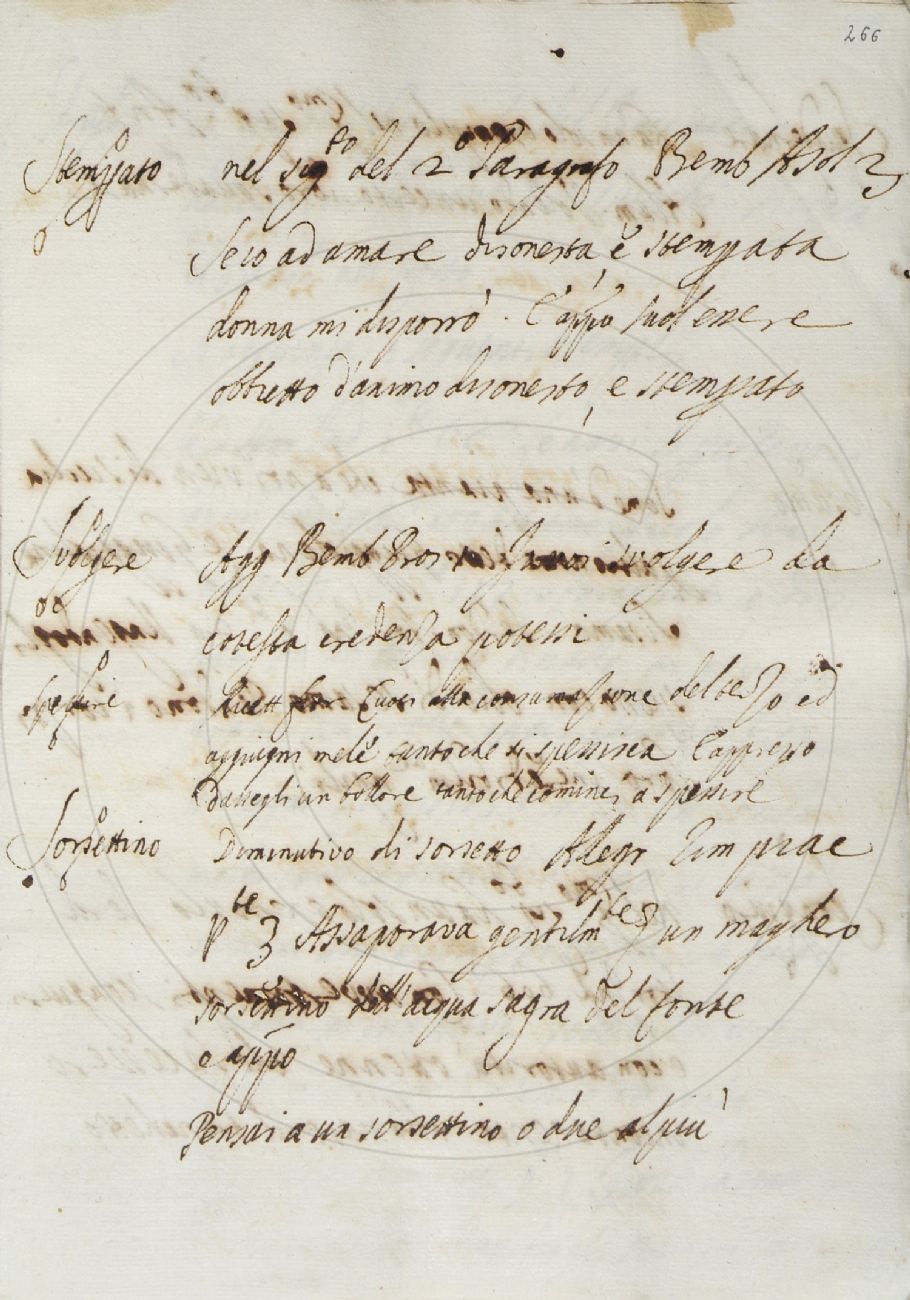 266
Stemp̱ato nel sig.to del 2o Paragrafo Bemb Asol 2
Se io ad amare disonesta, e stemp̱ata
donna mi disporrò. E app.o suol essere
obbietto d'animo disonesto, e stemp̱ato
Svolgere Agg Bemb Pros svolgere da
cotesta credenza potessi
Spessire Ricett fior Cuoci alla consumazione del terzo ed
aggiugni mele tanto che si spessisca E appresso
Dattegli un bollore tanto che cominci a spessire
Sorsettino Diminutivo di sorsetto Allegr Rim prae
P.te 3 Assaporava gentilm.te un maghero
sorsettino dell'acqua sagra del fonte
e app.o
Pensai a un sorsettino o due al più